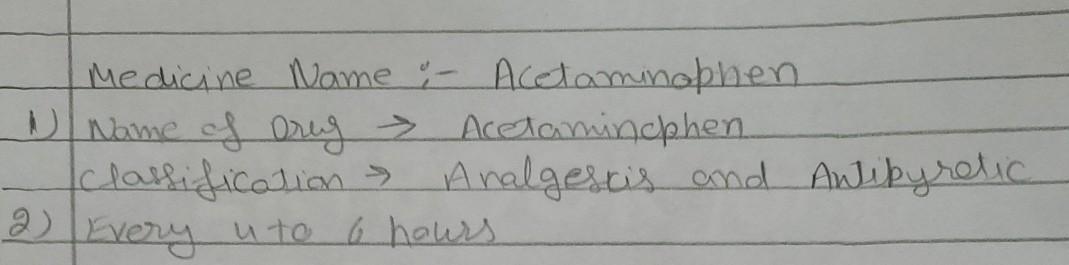 Medicine Name :- Acetaminophen
1) Name of Drug → Acetaminophen
Classification → Analgescis and Antipyretic
2) Every 4 to 6 hours